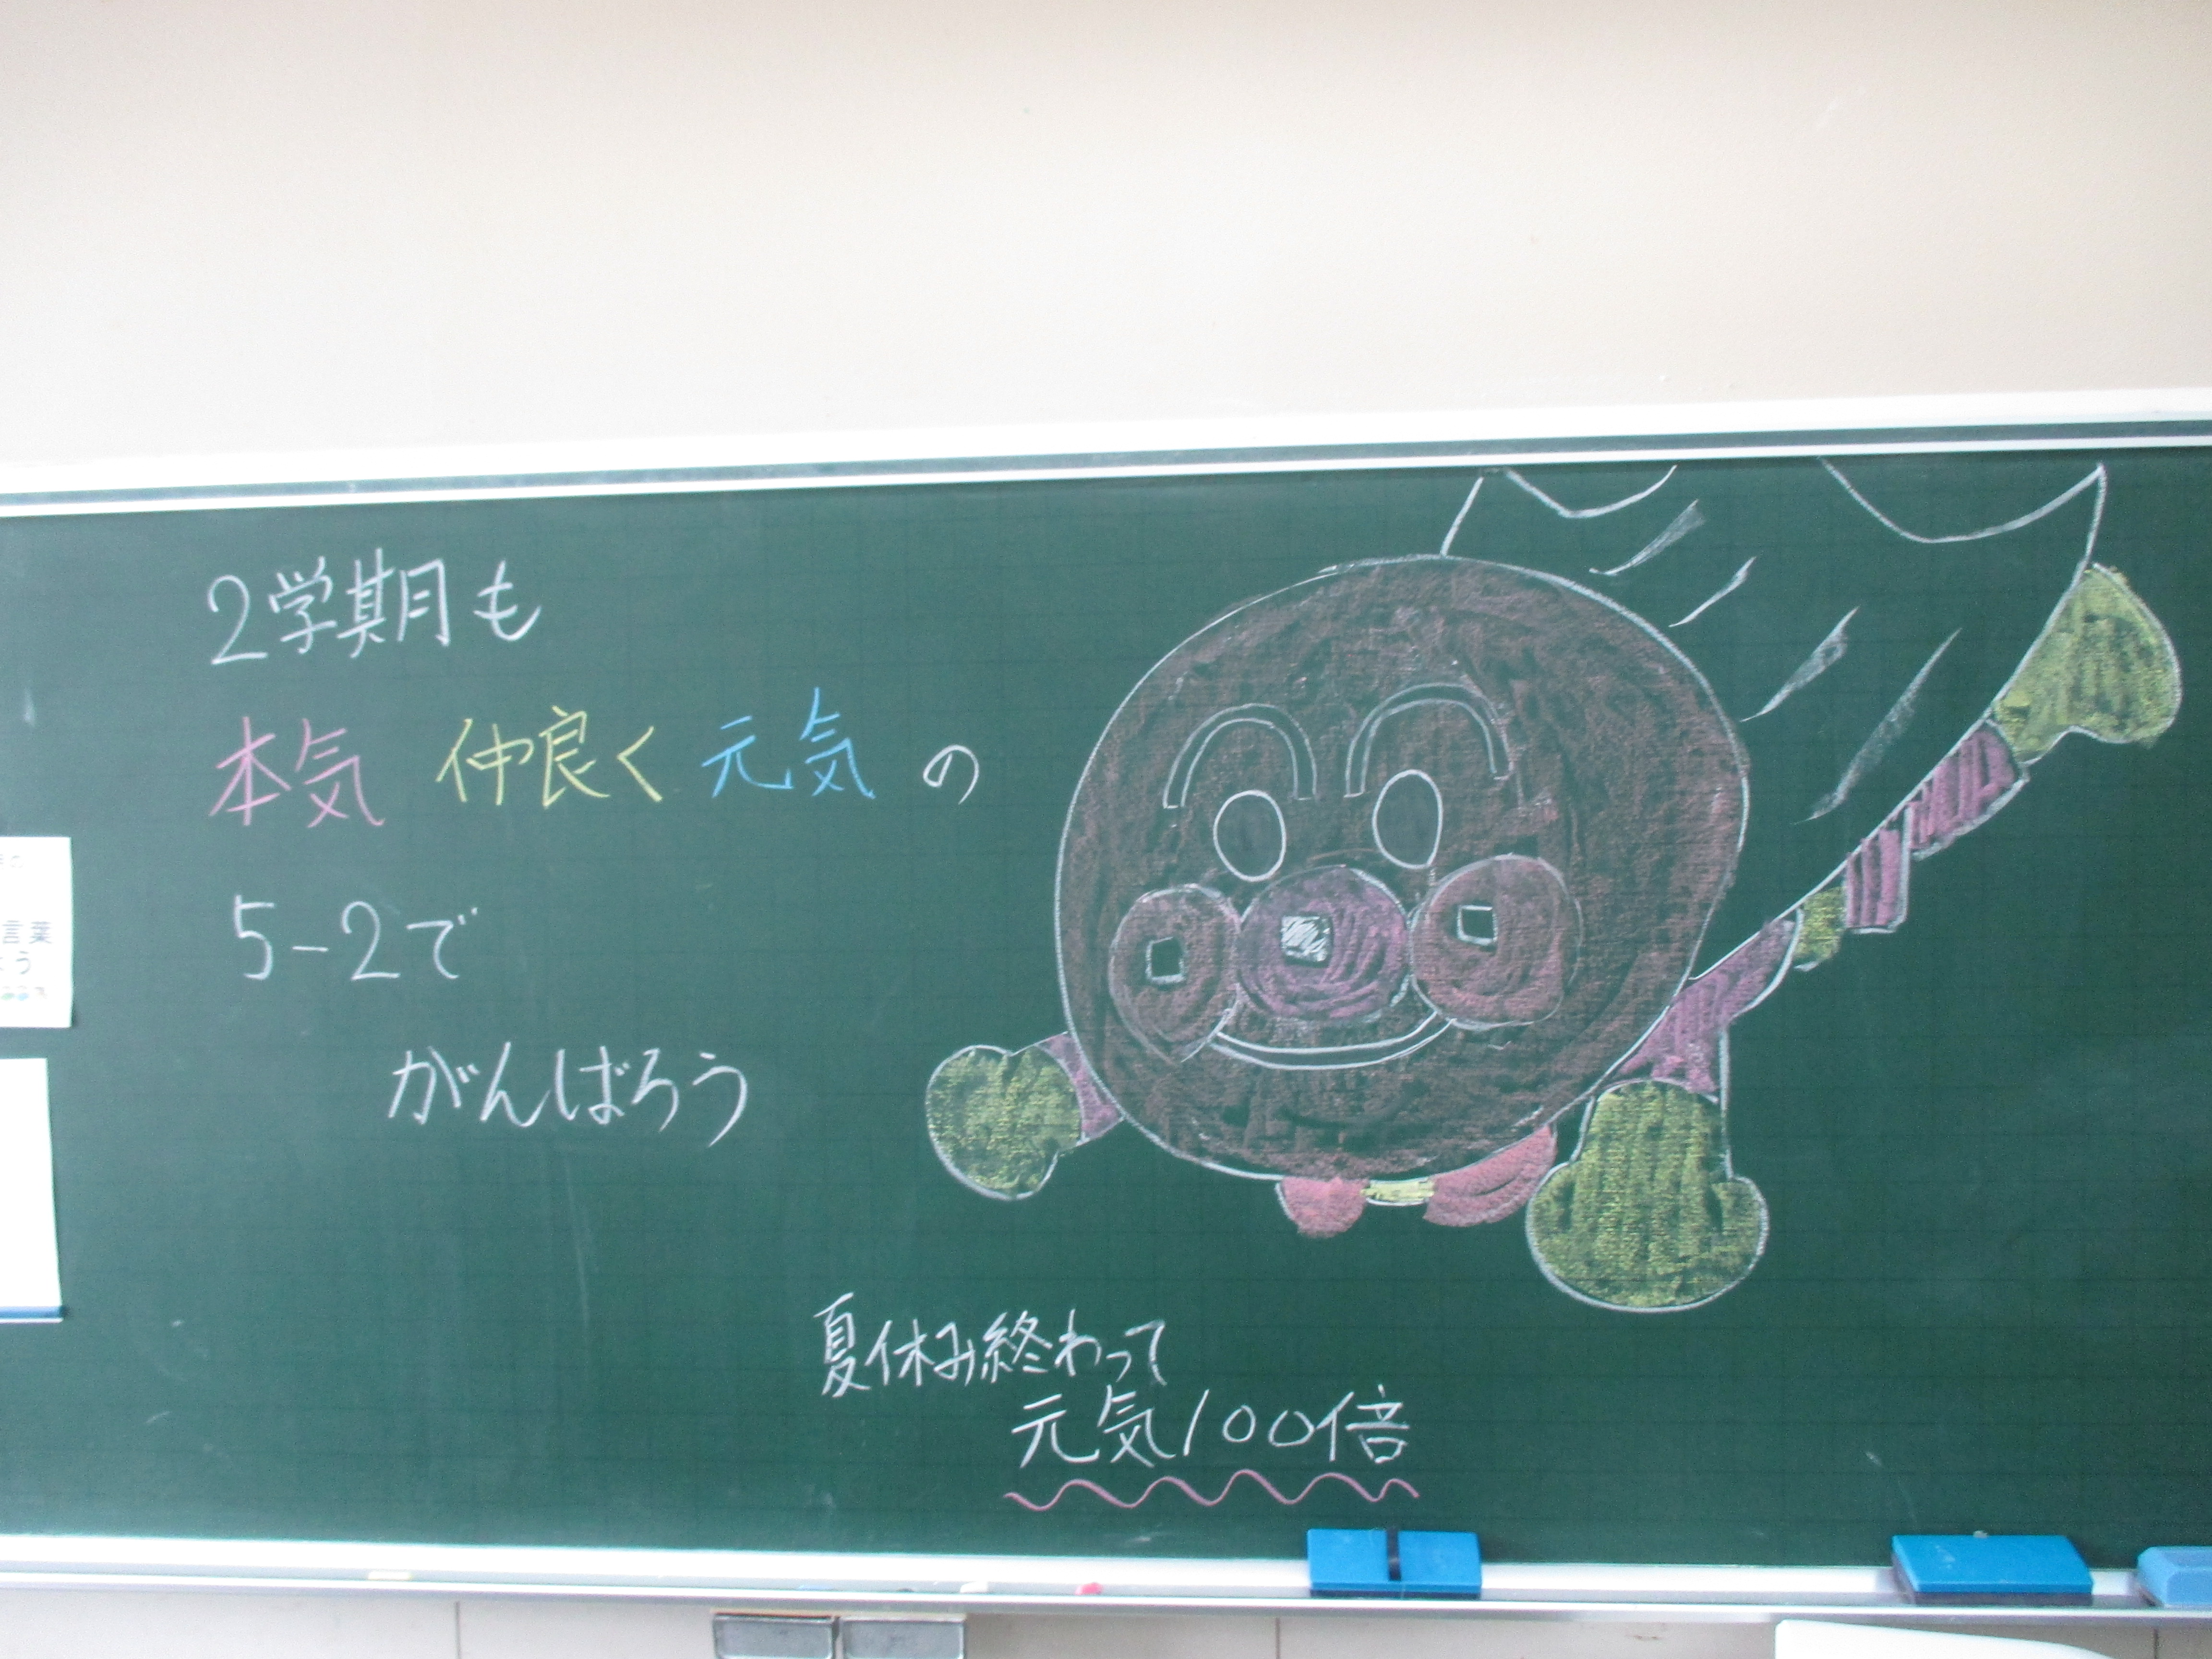 2学期も
本気 仲良く 元気 の
5-2で
がんばろう
夏休み終わって
元気100倍